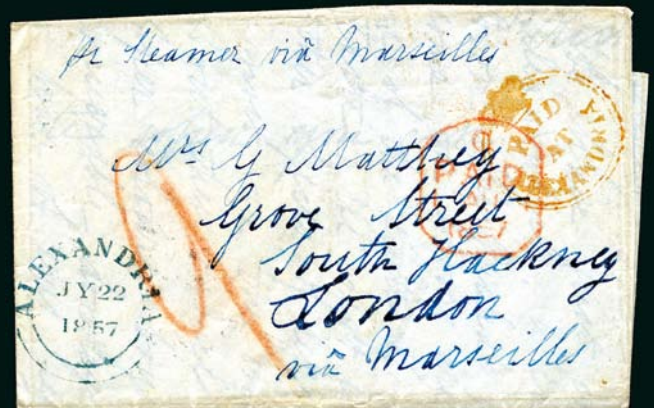 pr Steamer viâ Marseilles
PAID AT ALEXANDRIA
Mrs G Matthey
Grove Street
South Hackney
London
viâ Marseilles
9
PAID
1857
ALEXANDRIA
JY 22
1857